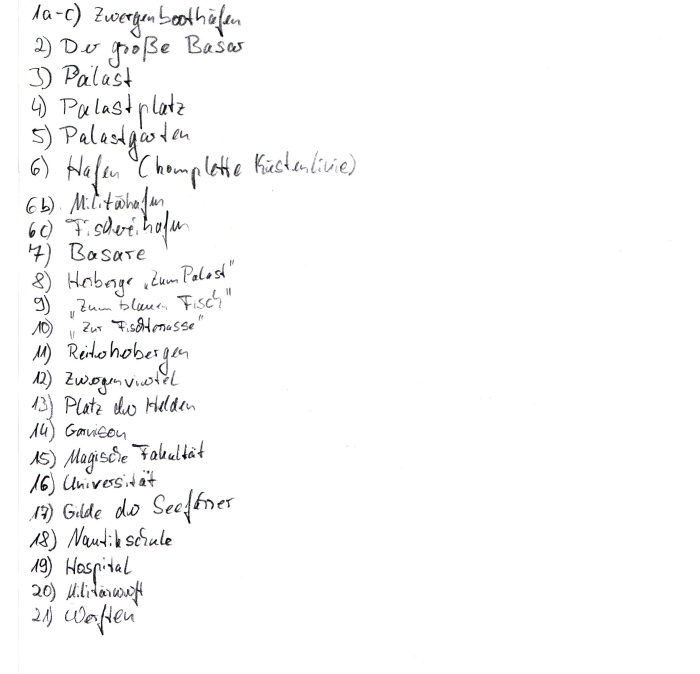 1a-c) Zwergenboothäfen
2) Der große Basar
3) Palast
4) Palastplatz
5) Palastgarten
6) Hafen (komplette Küstenlinie)
6b) Militärhafen
6c) Fischereihafen
7) Basare
8) Herberge „Zum Palast"
9) „Zum blauen Fisch"
10) „Zur Fischterrasse"
11) Reiterherbergen
12) Zwergenviertel
13) Platz der Helden
14) Garnison
15) Magische Fakultät
16) Universität
17) Gilde der Seefahrer
18) Nautikschule
19) Hospital
20) Militärwerft
21) Werften